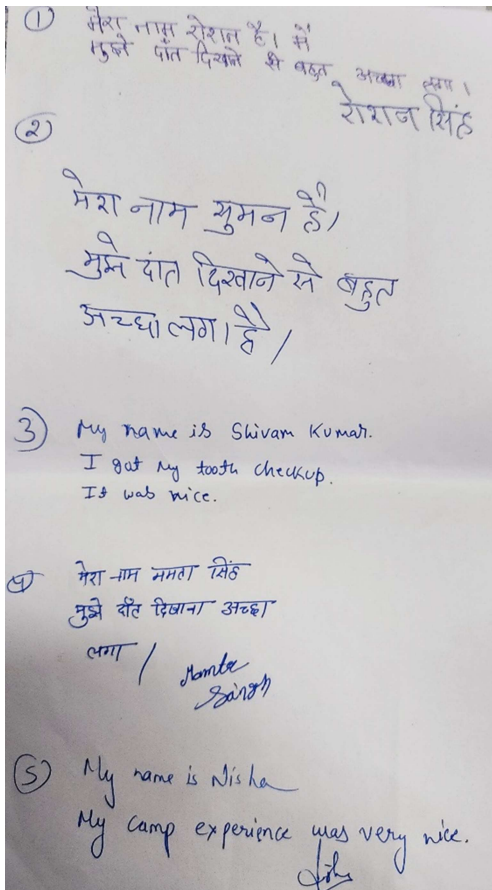 ① मेरा नाम रोशन है। मैं
मुझे दाँत दिखाने से बहुत अच्छा लगा।
रोशन सिंह
②
मेरा नाम सुमन है।
मुझे दांत दिखाने से बहुत
अच्छा लगा है।
3 My name is Shivam Kumar.
I got my tooth checkup.
It was nice.
4 मेरा नाम ममता सिंह
मुझे दाँत दिखाना अच्छा
लगा।
Mamta
Singh
⑤ My name is Nisha
My camp experience was very nice.